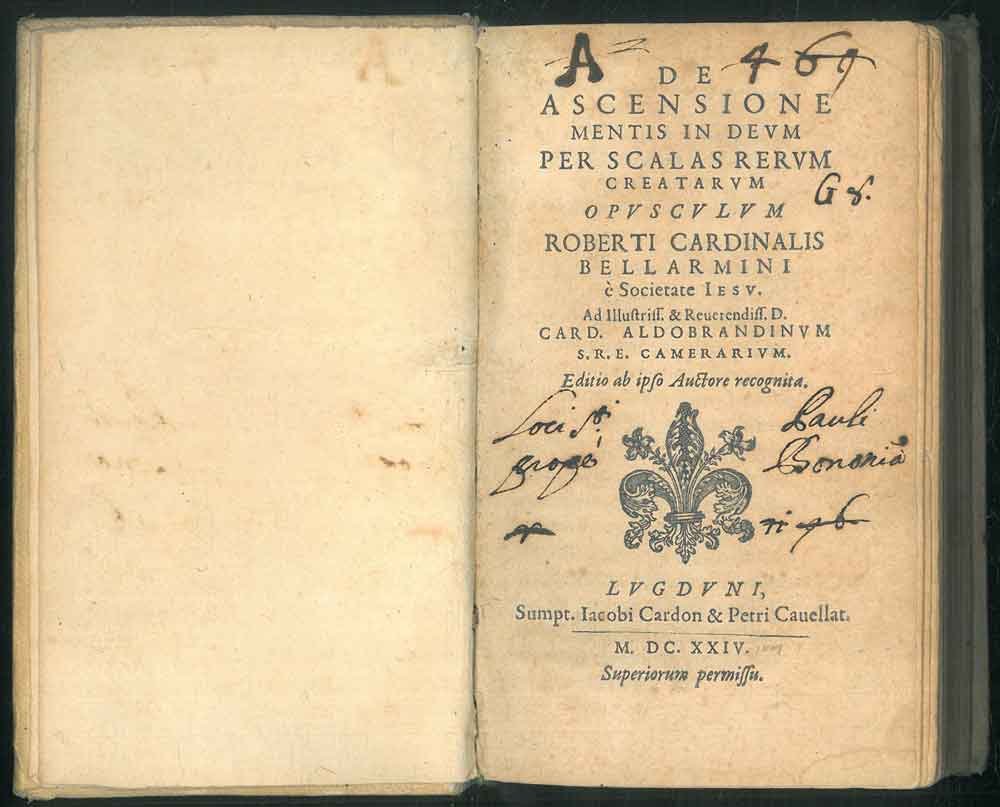 A 469
DE
ASCENSIONE
MENTIS IN DEVM
PER SCALAS RERVM
CREATARVM
G 8.
OPVSCVLVM
ROBERTI CARDINALIS
BELLARMINI
è Societate IESV.
Ad Illuſtriſſ. & Reuerendiſſ. D.
CARD. ALDOBRANDINVM
S. R. E. CAMERARIVM.
Editio ab ipſo Auctore recognita.
Loci Pauli
prope Bononiā
LVGDVNI,
Sumpt. Iacobi Cardon & Petri Cauellat.
M. DC. XXIV.
Superiorum permiſſu.